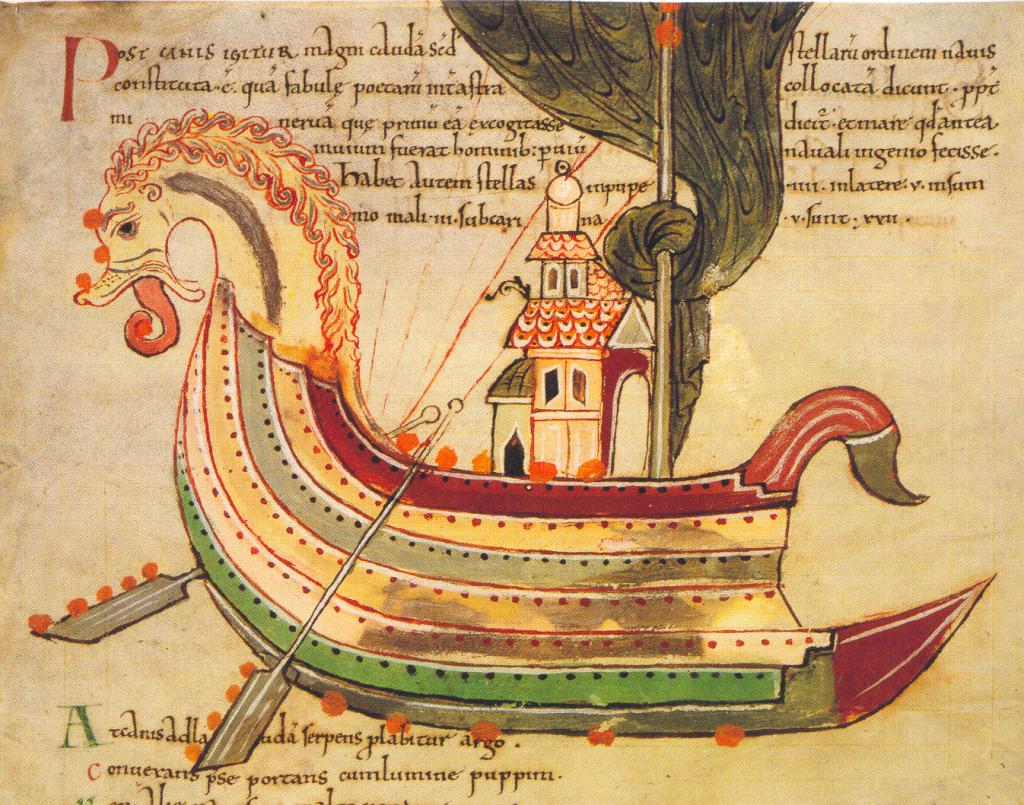 Post canis igitur magni caudā sed stellarū ordinem nauis
constituta ·ē· quā fabulę poetarū int̄ astra collocatā dicunt · ꝓpt̄
mi neruā quę primū eā excogitasse dicit̄ · et mare qd̄ antea
inuium fuerat hominib: ꝑuiū nauali ingenio fecisse ·
Habet autem stellas in puppe · IIII · in latere · V · in sum
mo mali · III · sub cari na · V · sunt · XXII ·
At canis ad caudā serpens ꝓlabitur argo ·
Conuersam pse portans cum lumine puppim ·